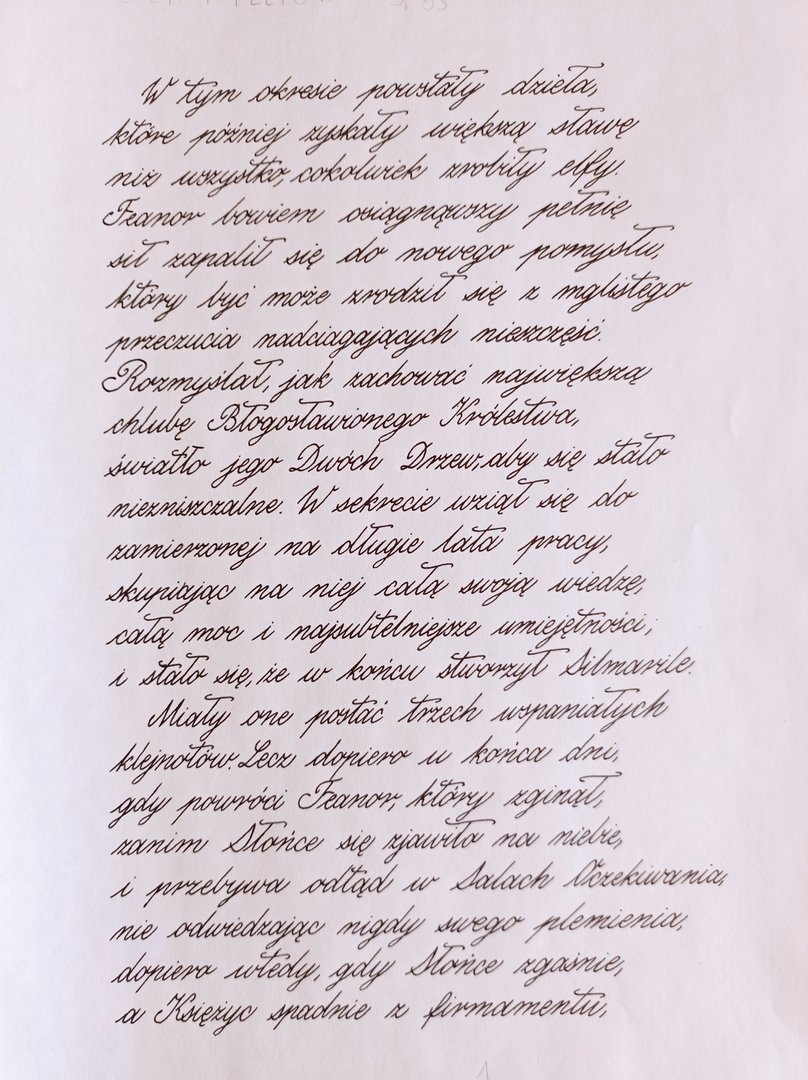 W tym okresie powstały dzieła,
które później zyskały większą sławę
niż wszystko, cokolwiek zrobiły elfy.
Feanor bowiem osiągnąwszy pełnię
sił zapalił się do nowego pomysłu,
który być może zrodził się z mglistego
przeczucia nadciagających nieszczęść.
Rozmyślał, jak zachować największą
chlubę Błogosławionego Królestwa,
światło jego Dwóch Drzew, aby się stało
niezniszczalne. W sekrecie wziął się do
zamierzonej na długie lata pracy,
skupiając na niej całą swoją wiedzę,
całą moc i najsubtelniejsze umiejętności,
i stało się, że w końcu stworzył Silmarile.
Miały one postać trzech wspaniałych
klejnotów. Lecz dopiero u końca dni,
gdy powróci Feanor, który zginął,
zanim Słońce się zjawiło na niebie,
i przebywa odtąd w Salach Oczekiwania,
nie odwiedzając nigdy swego plemienia,
dopiero wtedy, gdy Słońce zgaśnie,
a Księżyc spadnie z firmamentu,